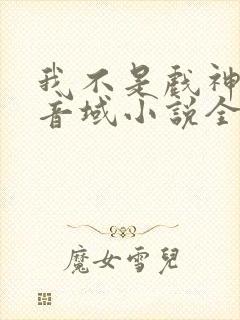 我不是戲神
音域小說全
魔女雪兒